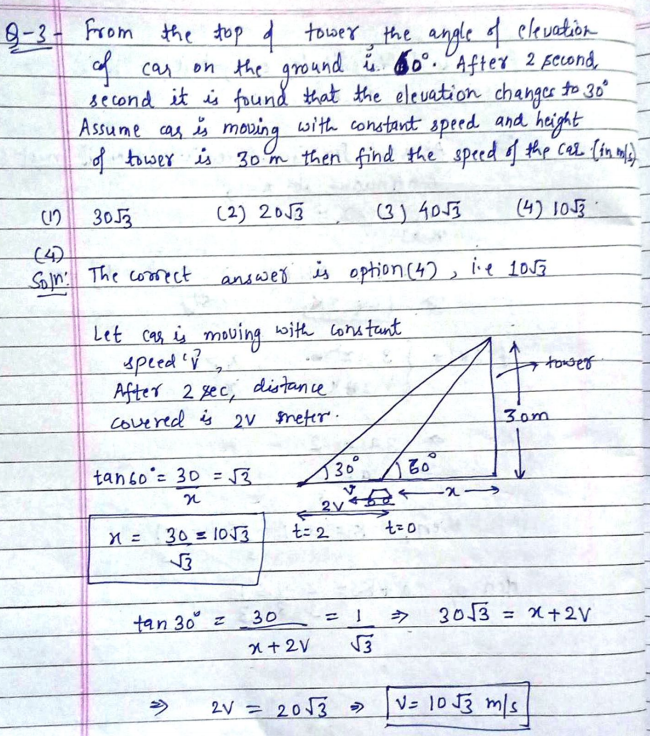 Q-3- From the top of tower, the angle of elevation
of car on the ground is 60°. After 2 second
second it is found that the elevation changes to 30°
Assume car is moving with constant speed and height
of tower is 30 m then find the speed of the car (in m/s)
(1) 30√3 (2) 20√3 (3) 40√3 (4) 10√3
(4)
Soln: The correct answer is option (4), i.e 10√3
Let car is moving with constant
speed 'V',
After 2 sec, distance
covered is 2V meter.
tower
30m
30° 60°
tan60° = 30/x = √3
V x
2V
t=2 t=0
x = 30/√3 = 10√3
tan 30° = 30/(x+2V) = 1/√3 ⇒ 30√3 = x+2V
⇒ 2V = 20√3 ⇒ V = 10√3 m/s